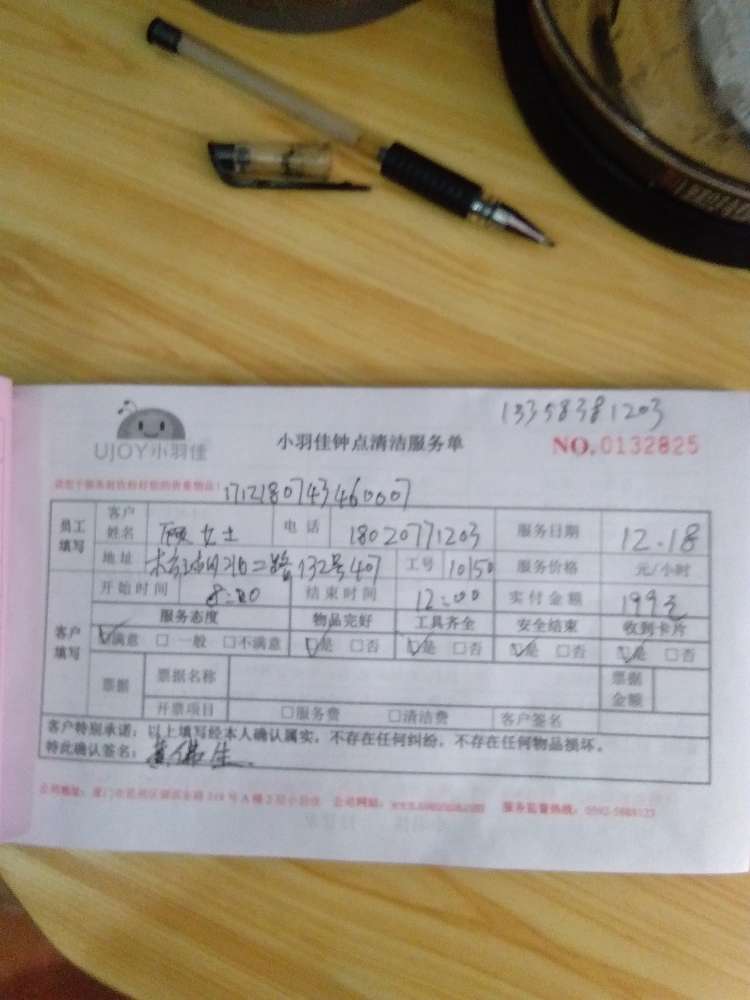 13358381203
UJOY小羽佳 小羽佳钟点清洁服务单 NO.0132825
1712180743460007
员工填写 客户姓名 顾女士 电话 18020771203 服务日期 12.18
地址 二路132号407 工号 10150 服务价格 元/小时
开始时间 8:00 结束时间 12:00 实付金额 199元
客户填写 服务态度 物品完好 工具齐全 安全结束 收到卡片
☑满意 □一般 □不满意 ☑是 □否 ☑是 □否 ☑是 □否 ☑是 □否
票据 票据名称 票据金额
开票项目 □服务费 □清洁费 客户签名
客户特别承诺：以上填写经本人确认属实，不存在任何纠纷，不存在任何物品损坏。
特此确认签名：
公司地址： 公司网站： 服务监督热线：